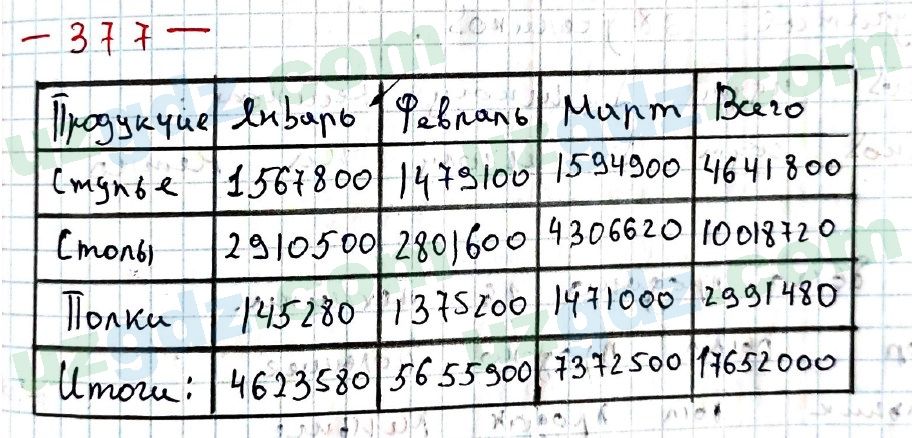 - 377 -
Продукцие Январь Февраль Март Всего
Стулье 1567800 1479100 1594900 4641800
Столы 2910500 2801600 4306620 10018720
Полки 145280 1375200 1471000 2991480
Итоги: 4623580 5655900 7372500 17652000
uzgdz.com